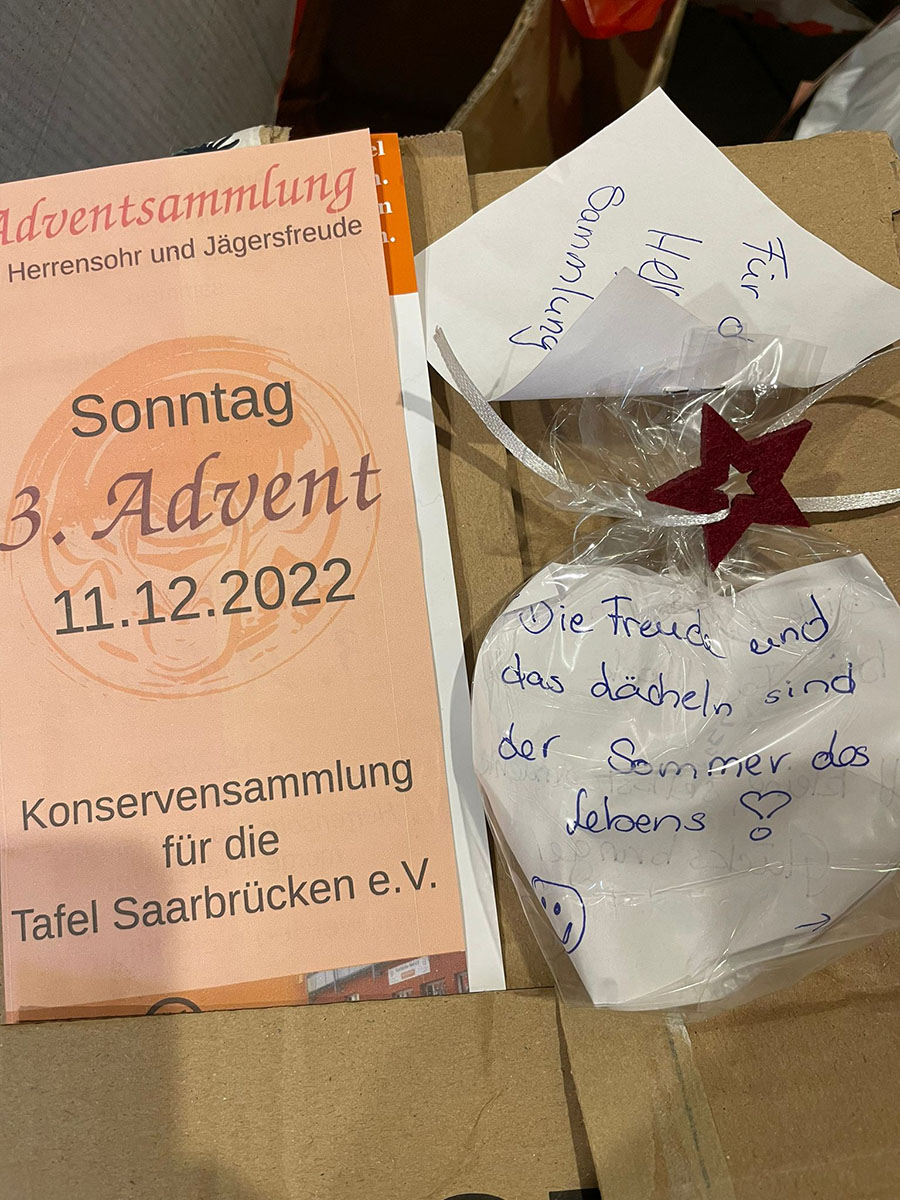 Adventsammlung
Herrensohr und Jägersfreude
Sonntag
3. Advent
11.12.2022
Konservensammlung
für die
Tafel Saarbrücken e.V.
el
n.
n
n.
Für
Sammlung
Die Freude und
das Lächeln sind
der Sommer des
Lebens